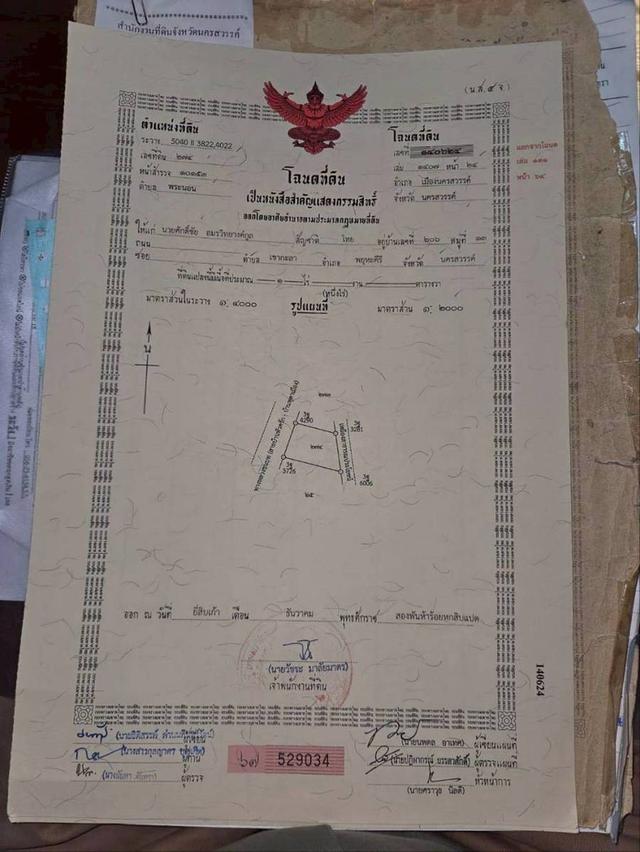 สำนักงานที่ดินจังหวัดนครสวรรค์
(น.ส.๔ จ.)
ตำแหน่งที่ดิน
ระวาง 5040 II 3822,4022
เลขที่ดิน ๒๗๔
หน้าสำรวจ ๑๐๑๕๓
ตำบล พระนอน
โฉนดที่ดิน
เลขที่ ๑๔๐๖๒๔
เล่ม ๑๔๐๗ หน้า ๒๔
อำเภอ เมืองนครสวรรค์
จังหวัด นครสวรรค์
แยกจากโฉนด
เล่ม ๑๓๑
หน้า ๖๔
โฉนดที่ดิน
เป็นหนังสือสำคัญแสดงกรรมสิทธิ์
ออกโดยอาศัยอำนาจตามประมวลกฎหมายที่ดิน
ให้แก่ นายศักดิ์ชัย อมรวิทยางค์กูล สัญชาติ ไทย อยู่บ้านเลขที่ ๒๐๖ หมู่ที่ ๑๓
ถนน
ซอย ตำบล เขากะลา อำเภอ พยุหะคีรี จังหวัด นครสวรรค์
ที่ดินแปลงนี้มีเนื้อที่ประมาณ ๑ ไร่ งาน ตารางวา
(หนึ่งไร่)
มาตราส่วนในระวาง ๑: ๔๐๐๐ รูปแผนที่ มาตราส่วน ๑: ๒๐๐๐
น
3ฐ
4290
3ฐ
3281
๒๗๔
3ฐ
3726
3ฐ
6006
๒๕
ออก ณ วันที่ ยี่สิบเก้า เดือน ธันวาคม พุทธศักราช สองพันห้าร้อยหกสิบแปด
(นายวัชระ มาลัยมาตร)
เจ้าพนักงานที่ดิน
140624
ผู้เขียน
ผู้ทาน
ผู้ตรวจ
๖๗ 529034
(นายนพดล อาเทศ) ผู้เขียนแผนที่
ผู้ตรวจแผนที่
หัวหน้าการ